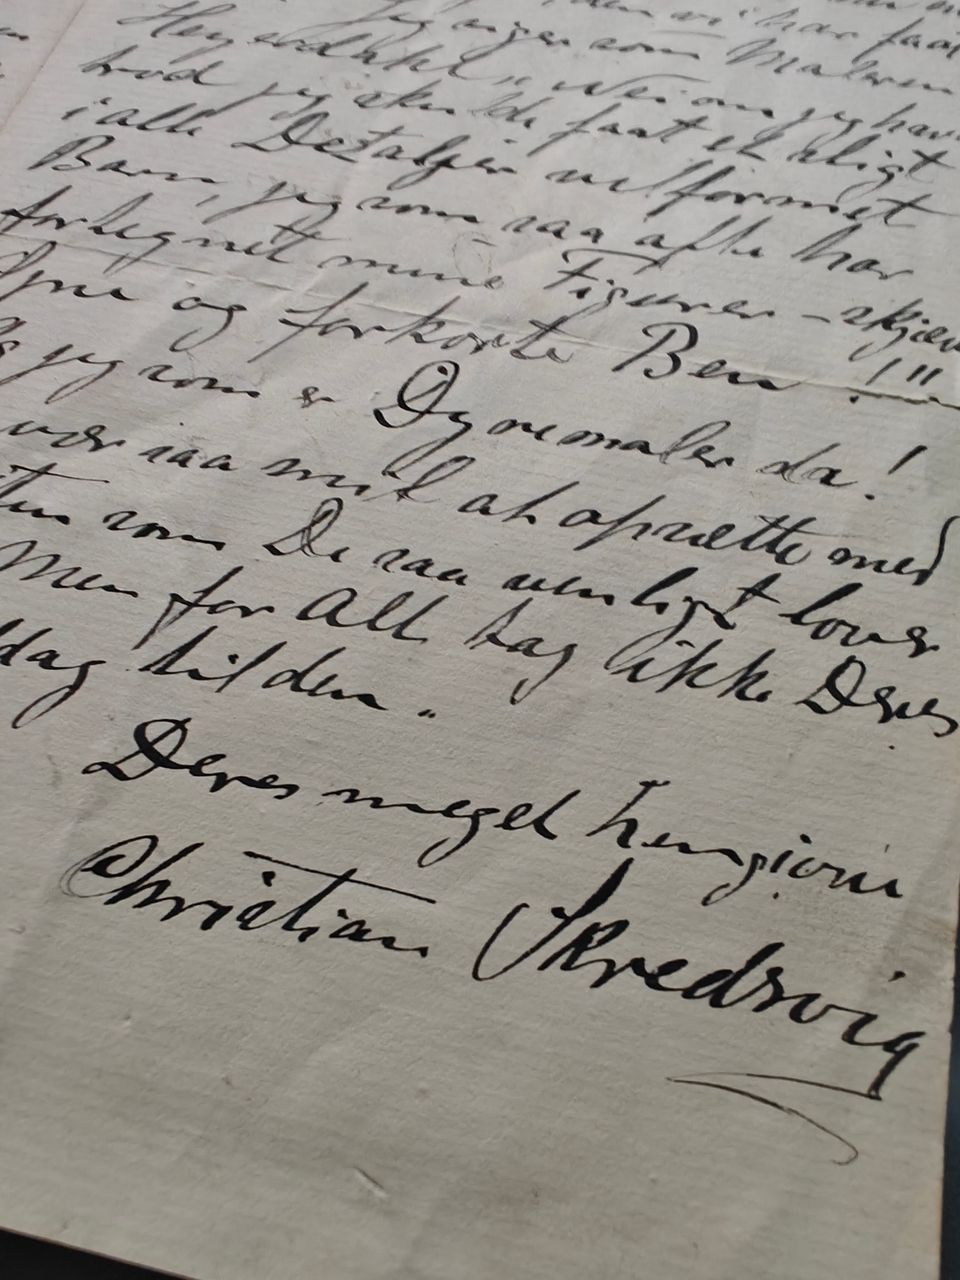 vi har faat
jeg ingen som Maleren
Heyerdahl, Nei om jeg havd
hvad jeg skulde faat et sligt
i alle Detaljer velformet
Barn, jeg som saa ofte har
fortegnet mine Figurer - skjæve
Øine og forkorte Ben !!!
jeg som er Dyremaler da!
var saa mit at oprette med
som De saa venligt lover
Men for Alt tag ikke Deres
dag til den.
Deres meget hengivne
Christian Skredsvig